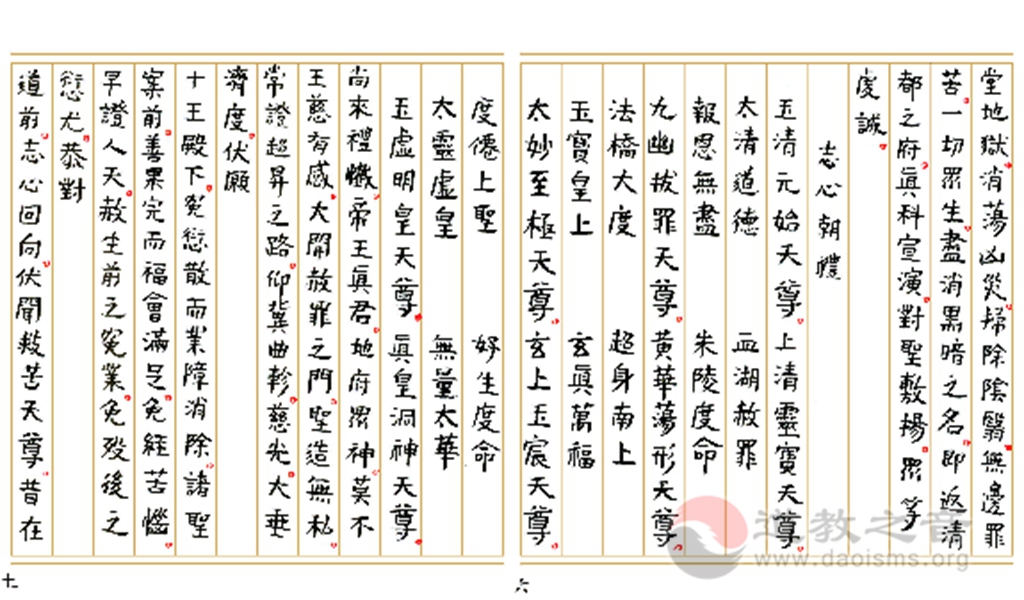 堂地獄消蕩凶災掃除陰翳無邊罪
苦一切眾生盡消黑暗之名即返清
都之府眞科宣演對聖敷揚眾等
虔誠
志心朝禮
五清元始天尊 上清靈寶天尊
太清道德 血湖赦罪
報恩無盡 朱陵度命
九幽拔罪天尊 黃華蕩形天尊
法橋大度 超身南上
玉寶皇上 玄眞萬福
太妙至極天尊 玄上玉宸天尊
度僊上聖 好生度命
太靈虛皇 無量太華
玉虛明皇天尊 眞皇洞神天尊
尚來禮懺帝王眞君地府眾神莫不
王慈有感大開赦罪之門聖造無私
常證超昇之路仰冀曲軫慈光大垂
濟度伏願
十王殿下冤愆散而業障消除諸聖
案前善果完而福會滿足免經苦惱
早證人天赦生前之冤業免歿後之
愆尤恭對
道前志心回向伏聞救苦天尊昔在
六
七
道教之音
www.daoisms.org